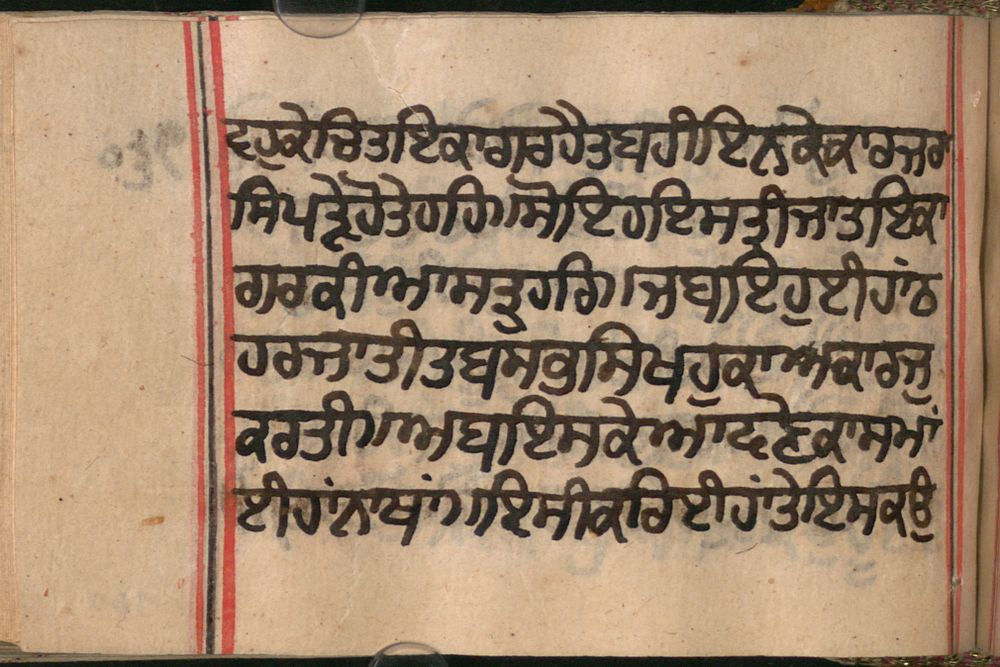 ਵਹੁਕੇਚਿਤਇਕਾਗ੍ਰਹੈਤਬਹੀਇਨਕੇਕਾਰਜਰਾ
ਸਿਪੜ੍ਹੇਹੋਤੇਹਹਿ।ਸੋਇਹਇਸਤ੍ਰੀਜਾਤਇਕਾ
ਗ੍ਰਕੀਆਸਤ੍ਰੁਹਹਿ।ਜਬਇਹੁਈਹਾਂਠ
ਹਰਜਾਤੀਤਬਸਭੁਸਿਖਹੁਕਾਅਕਾਰਜੁ
ਕਰਤੀ।ਅਬਇਸਕੇਆਵਣੇਕਾਸਮਾਂ
ਈਹਾਂਨਾਥਾਂ।ਇਸੀਕਰਿਈਹਾਂਤੇਇਸਕਉ